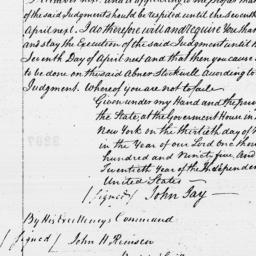 of the said Judgments should be respited until the Seventh
April next. I do therefore will and require You tha
and stay the Execution of the said Judgment until
Seventh Day of April next and that then you cause
to be done on the said Abner Stockwell According to
Judgment. Whereof you are not to fail.
Given under my Hand and the pri
the State, at the Government House in
New York on the thirtieth day of
in the Year of our Lord One thou
hundred and Ninety five, And
Twentieth Year of the Independen
United States —
/Signed/ John Jay —
By His Excellency's Command
/Signed/ John H Remsen